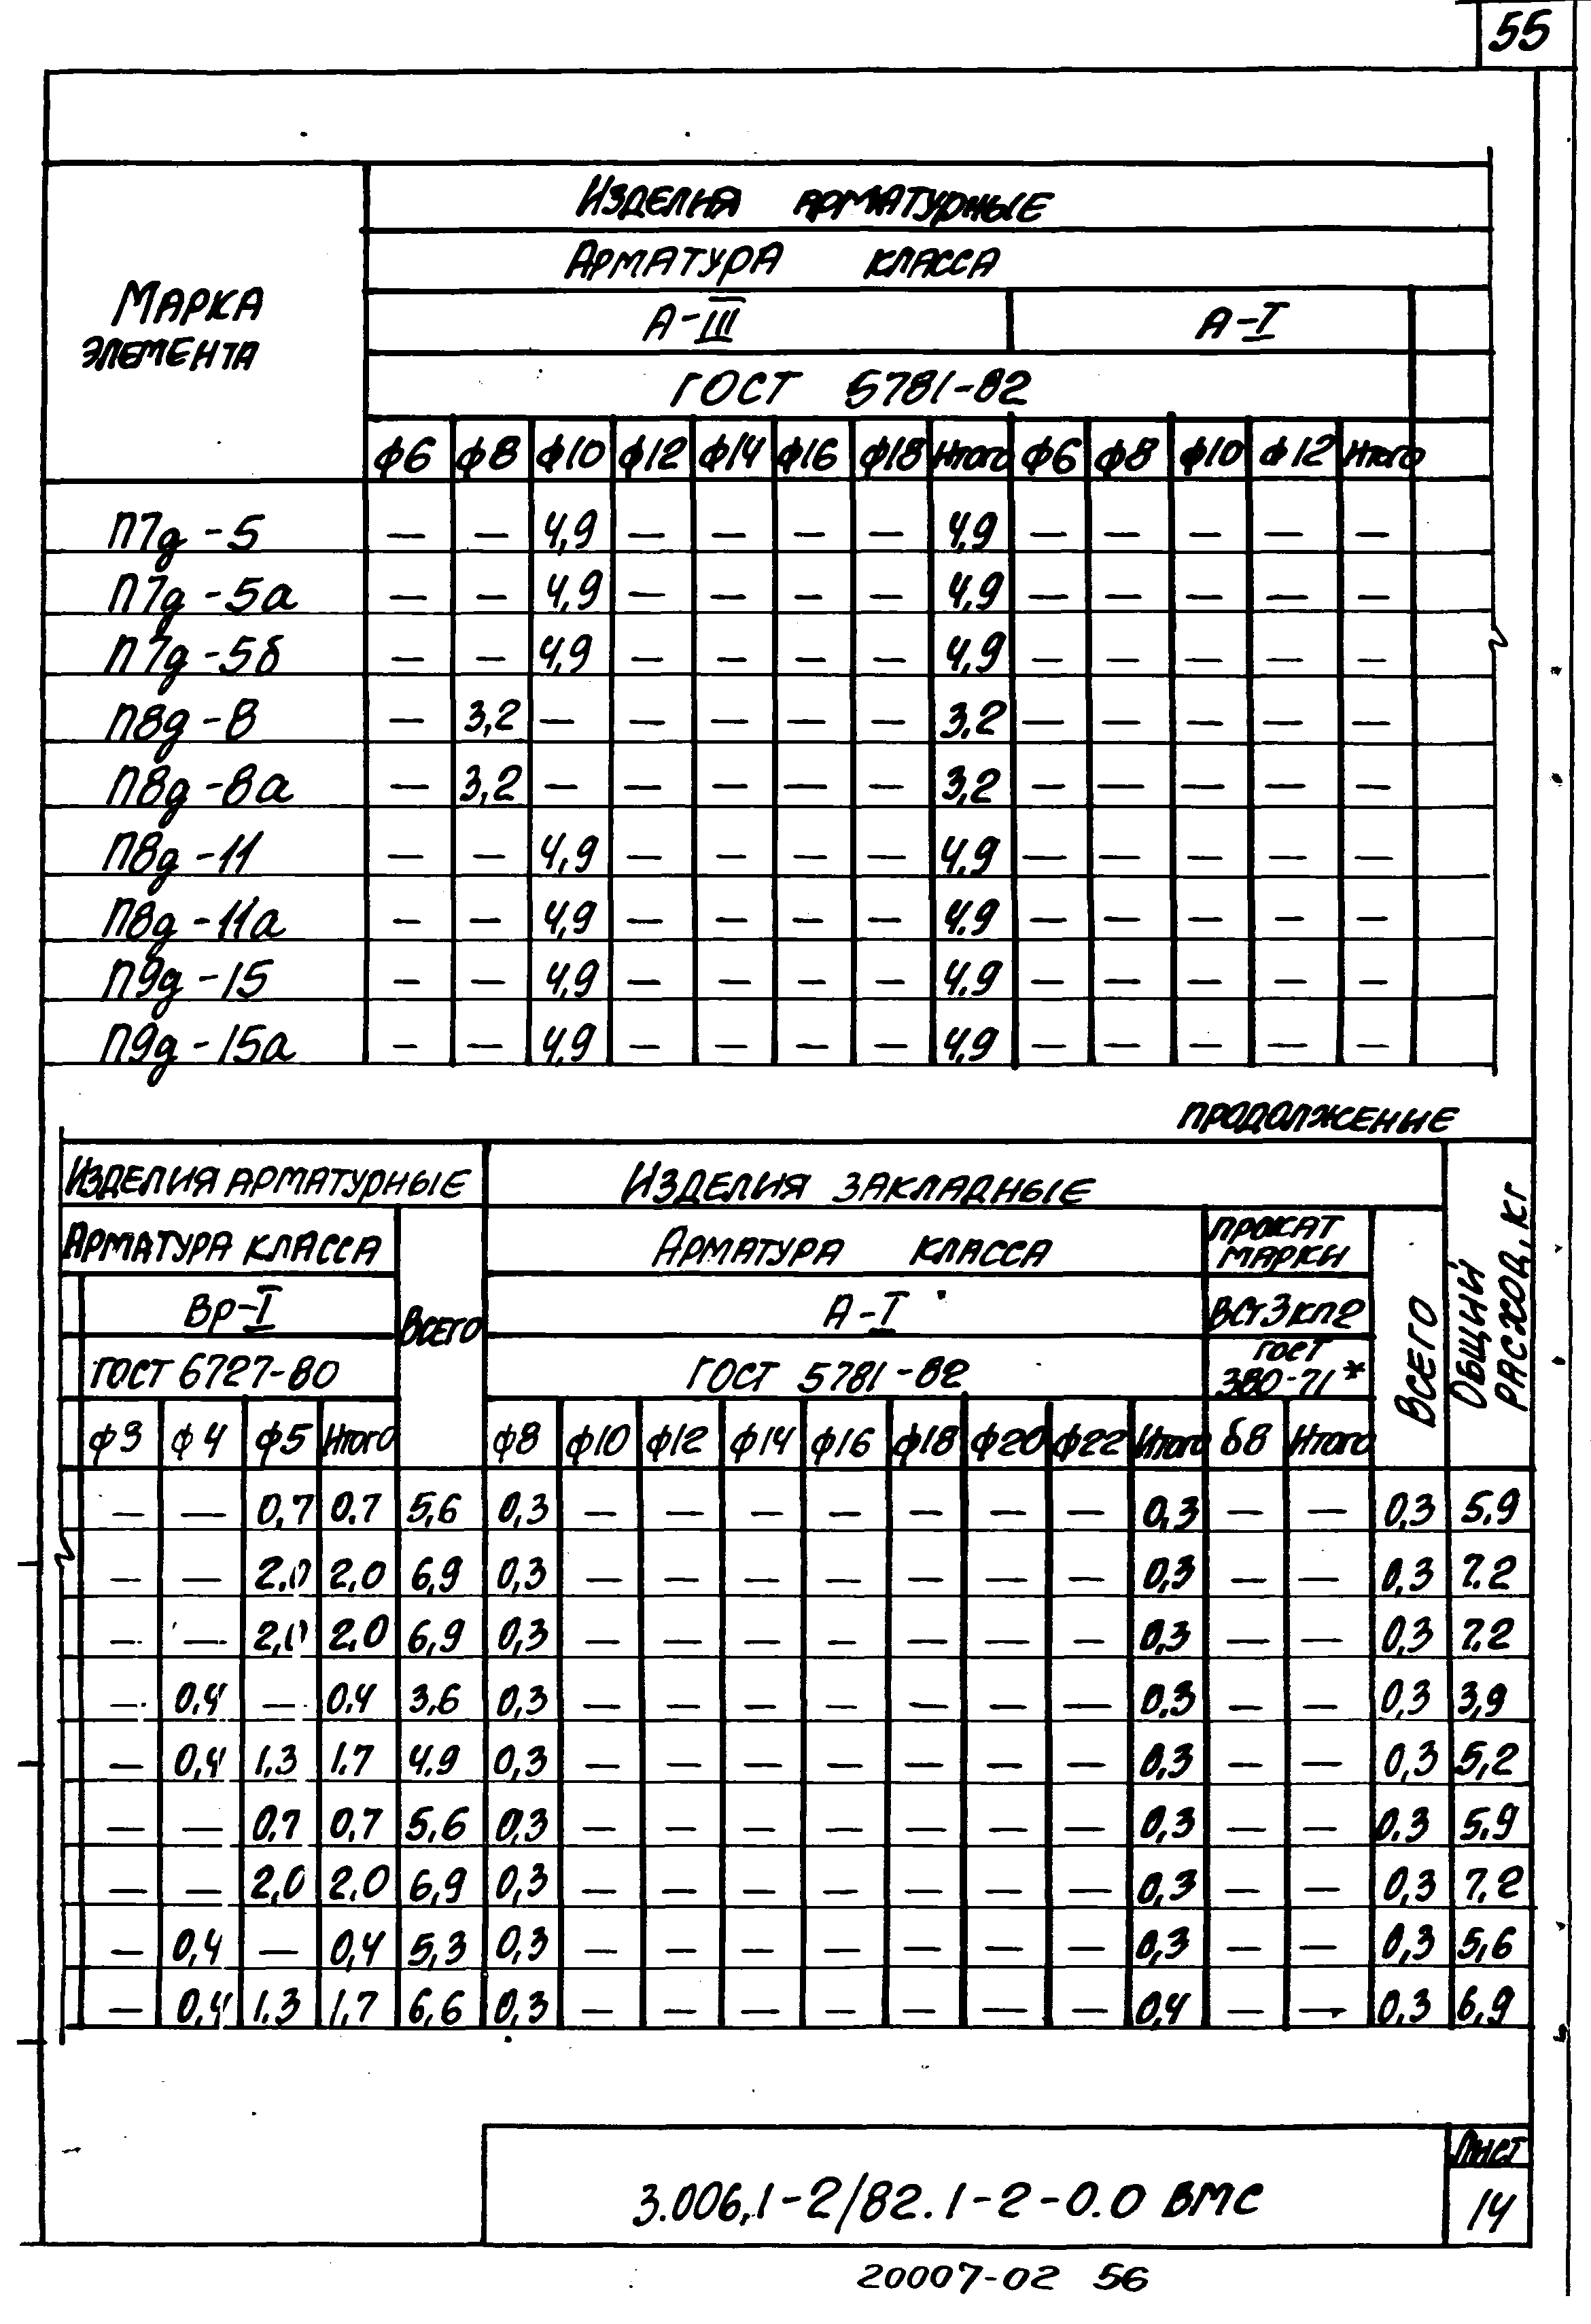 55
Изделия арматурные
Арматура класса
Марка элемента
А-III А-I
ГОСТ 5781-82
ф6 ф8 ф10 ф12 ф14 ф16 ф18 Итого ф6 ф8 ф10 ф12 Итого
П7д-5 — — 4,9 — — — — 4,9 — — — — —
П7д-5а — — 4,9 — — — — 4,9 — — — — —
П7д-5б — — 4,9 — — — — 4,9 — — — — —
П8д-8 — 3,2 — — — — — 3,2 — — — — —
П8д-8а — 3,2 — — — — — 3,2 — — — — —
П8д-11 — — 4,9 — — — — 4,9 — — — — —
П8д-11а — — 4,9 — — — — 4,9 — — — — —
П9д-15 — — 4,9 — — — — 4,9 — — — — —
П9д-15а — — 4,9 — — — — 4,9 — — — — —
продолжение
Изделия арматурные Изделия закладные Общий расход, кг
Арматура класса Всего Арматура класса Прокат марки Всего
Вр-I А-I ВСт3кп2
ГОСТ 6727-80 ГОСТ 5781-82 ГОСТ 380-71*
ф3 ф4 ф5 Итого ф8 ф10 ф12 ф14 ф16 ф18 ф20 ф22 Итого δ8 Итого
— — 0,7 0,7 5,6 0,3 — — — — — — — 0,3 — — 0,3 5,9
— — 2,0 2,0 6,9 0,3 — — — — — — — 0,3 — — 0,3 7,2
— — 2,0 2,0 6,9 0,3 — — — — — — — 0,3 — — 0,3 7,2
— 0,4 — 0,4 3,6 0,3 — — — — — — — 0,3 — — 0,3 3,9
— 0,4 1,3 1,7 4,9 0,3 — — — — — — — 0,3 — — 0,3 5,2
— — 0,7 0,7 5,6 0,3 — — — — — — — 0,3 — — 0,3 5,9
— — 2,0 2,0 6,9 0,3 — — — — — — — 0,3 — — 0,3 7,2
— 0,4 — 0,4 5,3 0,3 — — — — — — — 0,3 — — 0,3 5,6
— 0,4 1,3 1,7 6,6 0,3 — — — — — — — 0,4 — — 0,3 6,9
3.006.1-2/82.1-2-0.0 ВМС
Лист
14
20007-02 56